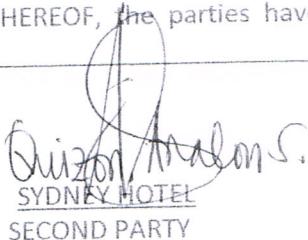 HEREOF, the parties hav
Quizon, Analon S.
SYDNEY HOTEL
SECOND PARTY